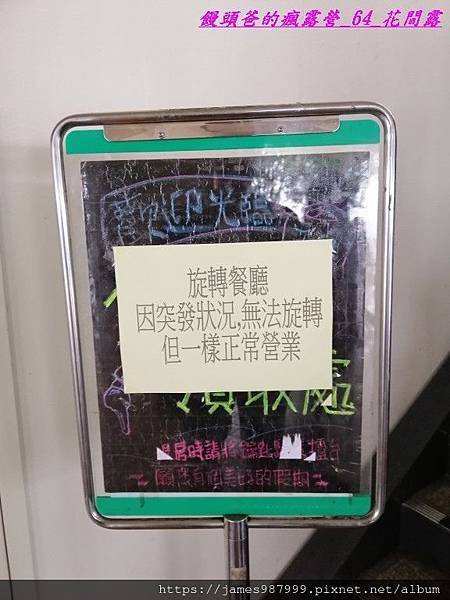 饅頭爸的瘋露營_64_花間露
歡迎光臨
旋轉餐廳
因突發狀況,無法旋轉
但一樣正常營業
處
居時請將
的假期
https://james987999.pixnet.net/album